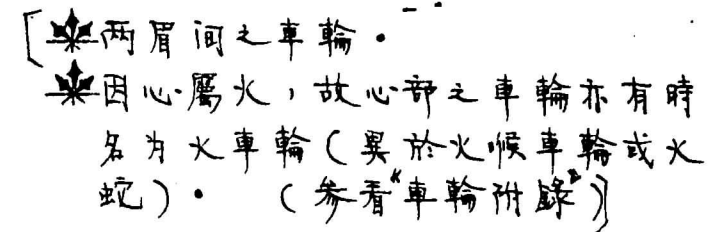 [两眉间之車輪.
因心屬火,故心部之車輪亦有時
名为火車輪(異於火候車輪或火
蛇). (参看"車輪附錄")]